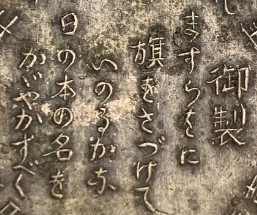 御製
ますらをに
旗をさづけて
いのるかな
日の本の名を
かゞやかすべく